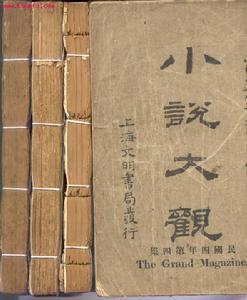 小說大觀
上海文明書局發行
民國四年第四集
The Grand Magazine